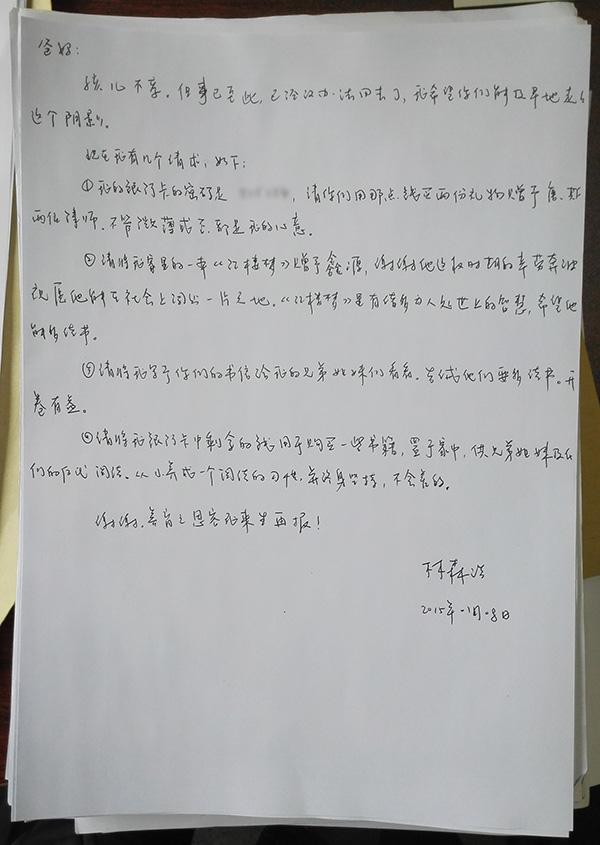 爸好：
孩儿不幸。但事已至此，已经没办法回去了，我希望你们能及早地走出
这个阴影。
现在我有几个请求，如下：
①我的银行卡的密码是，请你们用那点钱买两份礼物赠予唐、斯
两位律师。不管微薄或否，那是我的心意。
②请将我家里的一本《红楼梦》赠予鑫源，谢谢他这段时期的辛苦奔波
祝愿他能在社会上闯出一片天地。《红楼梦》是有人处世上的智慧，希望他
能多读书。
③请将我写予你们的书信给我的兄弟姐妹们看看。告诫他们要多读书。开
卷有益。
④请将我银行卡中剩余的钱用于购买一些书籍，置于家中，供兄弟姐妹及他
们的后代阅读。从小养成一个阅读的习惯，并终身坚持，不会差的。
谢谢。养育之恩容我来生再报！
林森浩
2015年·1月·8日